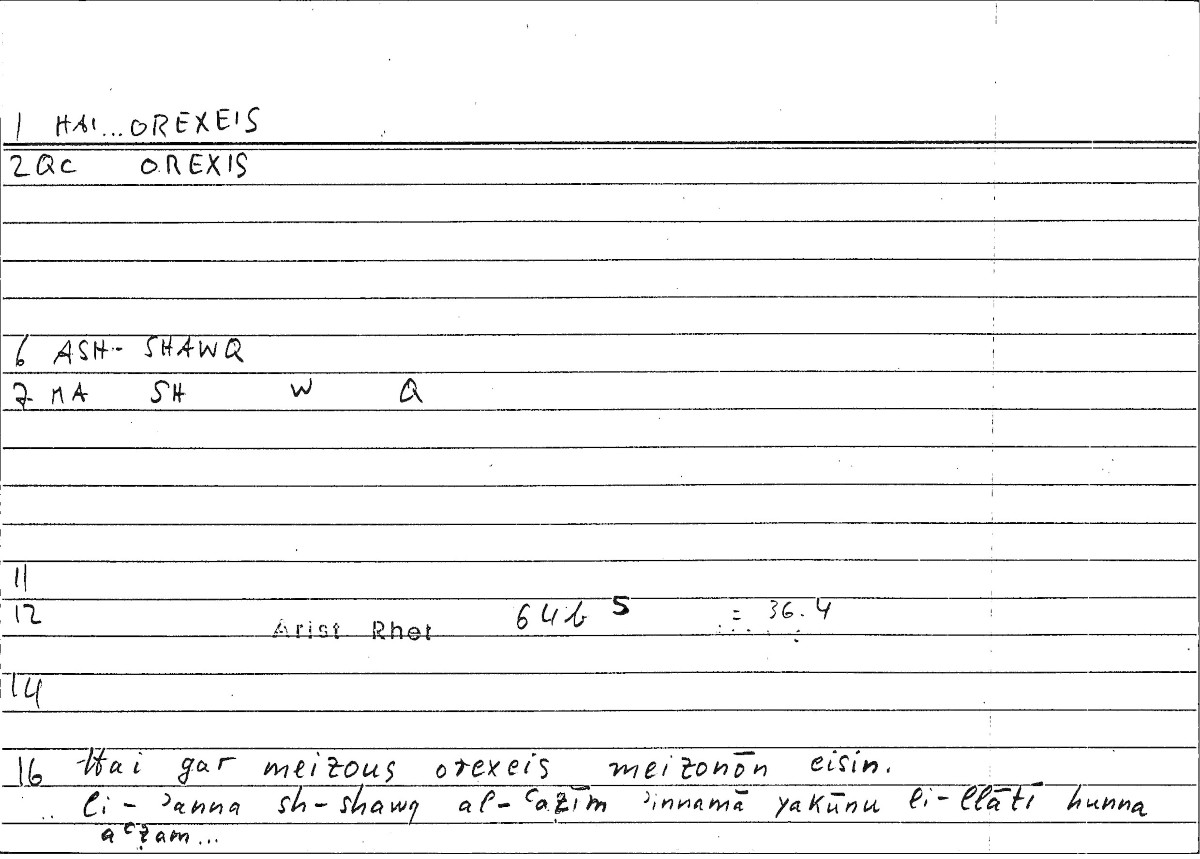 1 HAI...OREXEIS
2 QC OREXIS
6 ASH- SHAWQ
7 MA SH W Q
11
12 Arist Rhet 64b 5 = 36.4
14
16 Hai gar meizous orexeis meizonōn eisin.
li-ʾanna sh-shawq al-ʿaẓīm ʾinnamā yakūnu li-llātī hunna
aʿẓam...